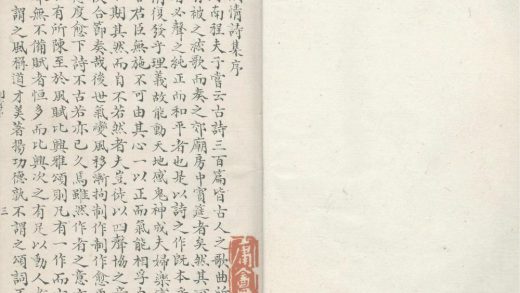 情詩集序
南程夫子嘗云古詩三百篇皆古人之歌曲
有被之弦歌而奏之郊廟房中賓筵者矣然其
必聲之純正而和平者也是以詩之作既本
情復發乎理義故能動天地感鬼神成夫婦樂
君臣無施不可由其心一以正而氣能相孚
期其然而自不若然者夫豈徒以四聲協之
合節奏哉後世氣變風移漸拘制作制作愈
度愈下詩不古若亦已久焉雖然作者之意
有所陳至於風賦比興雅頌則凡有一作而
無不備賦者恒多而比興次之有足以動人
謂之風稱道才美著揚功德孰不謂之頌詞
三